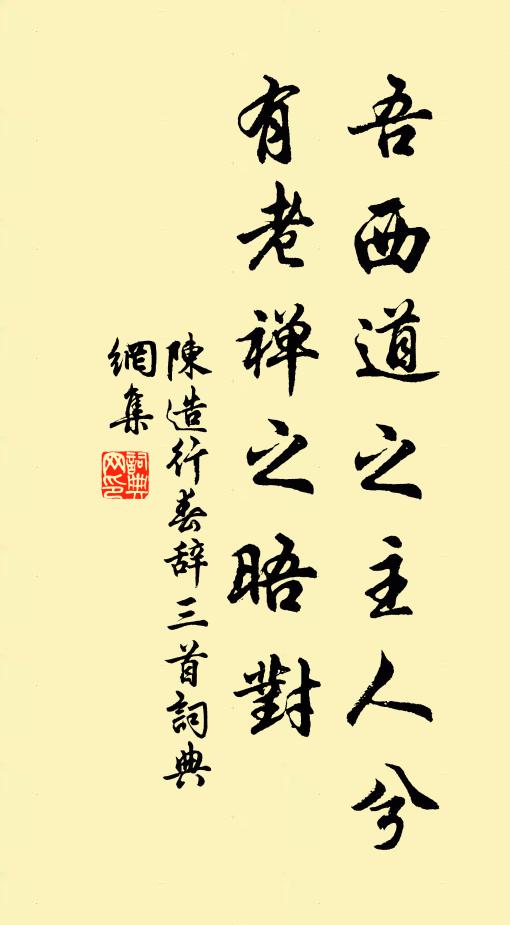 吾西道之主人兮
有老禅之晤對
陳造行春辞三首詞典
網集
詞典網印